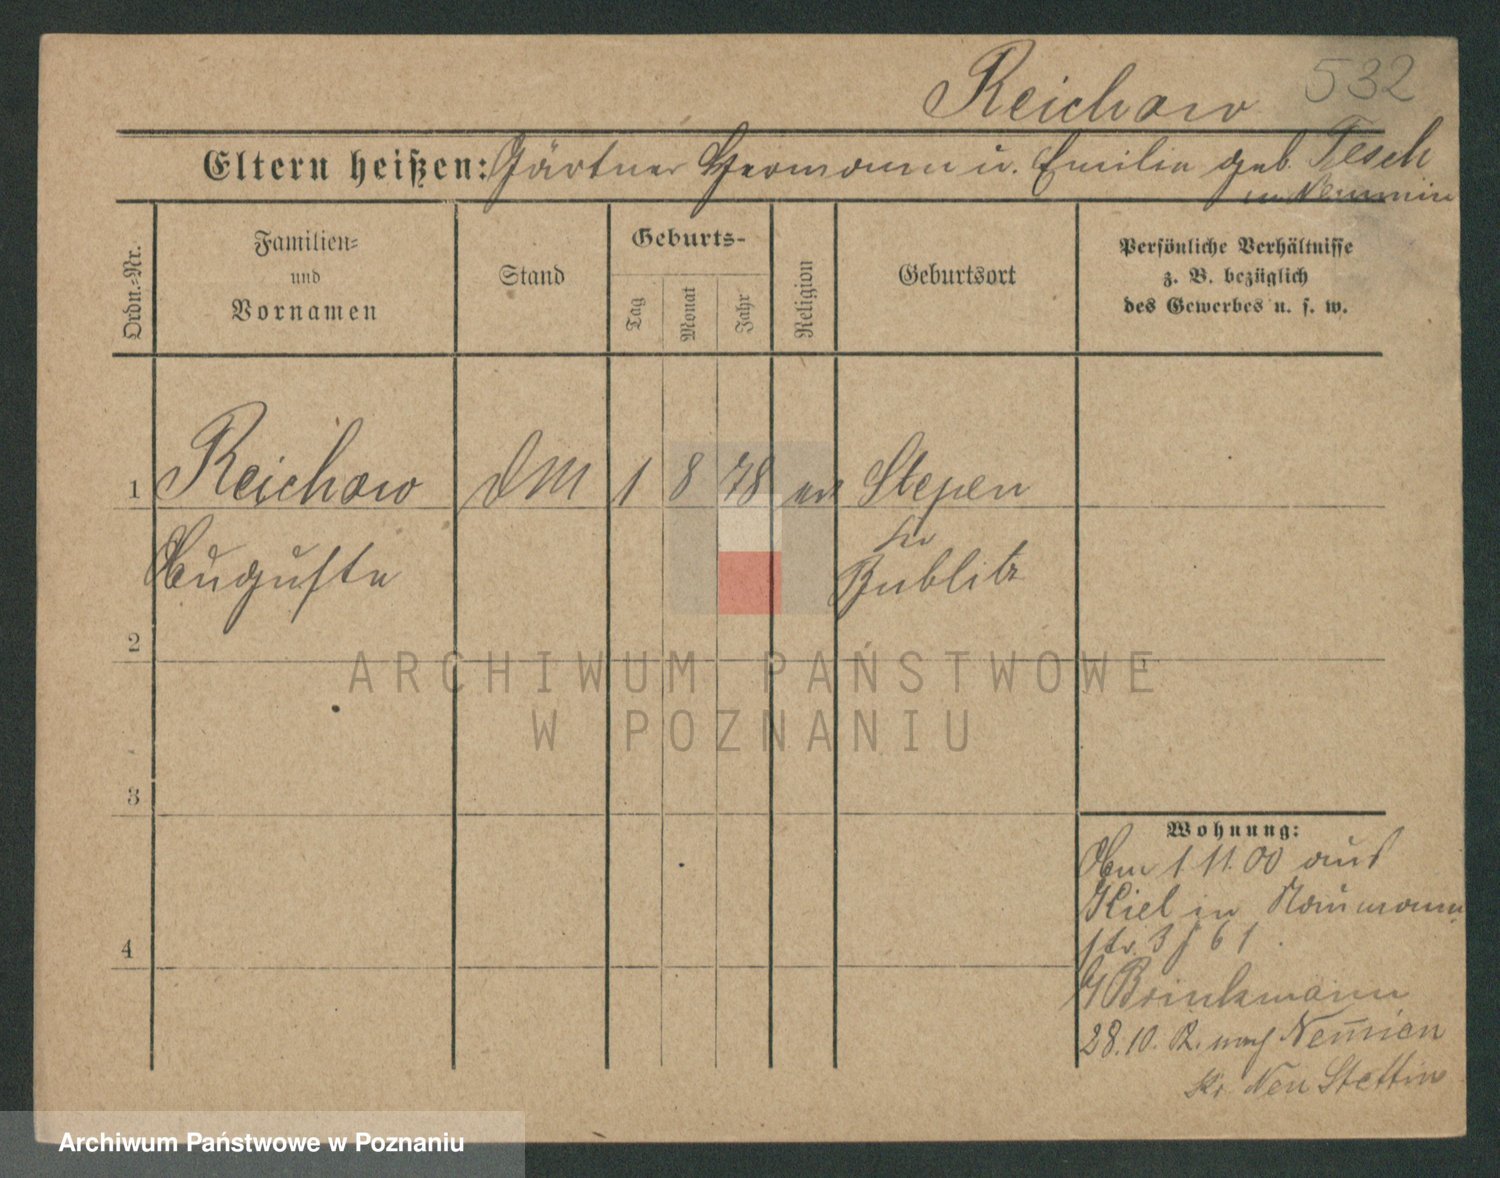 Reichow 532
Eltern heißen: Gärtner Hermann u. Emilie geb. Tesch
in Nemmin
Ordn.-Nr.
Familien-
und
Vornamen
Stand
Geburts-
Tag
Monat
Jahr
Religion
Geburtsort
Persönliche Verhältnisse
z. B. bezüglich
des Gewerbes u. s. w.
1 Reichow DM 1 8 78 ev Stepen
Kr
Auguste Bublitz
2
ARCHIWUM PAŃSTWOWE
W POZNANIU
3
Wohnung:
Am 1 11. 00 aus
Kiel in Naumann
str. 3 f 61.
Brinkmann
4
28.10. R. nach Nemmin
Kr. Neu Stettin
Archiwum Państwowe w Poznaniu